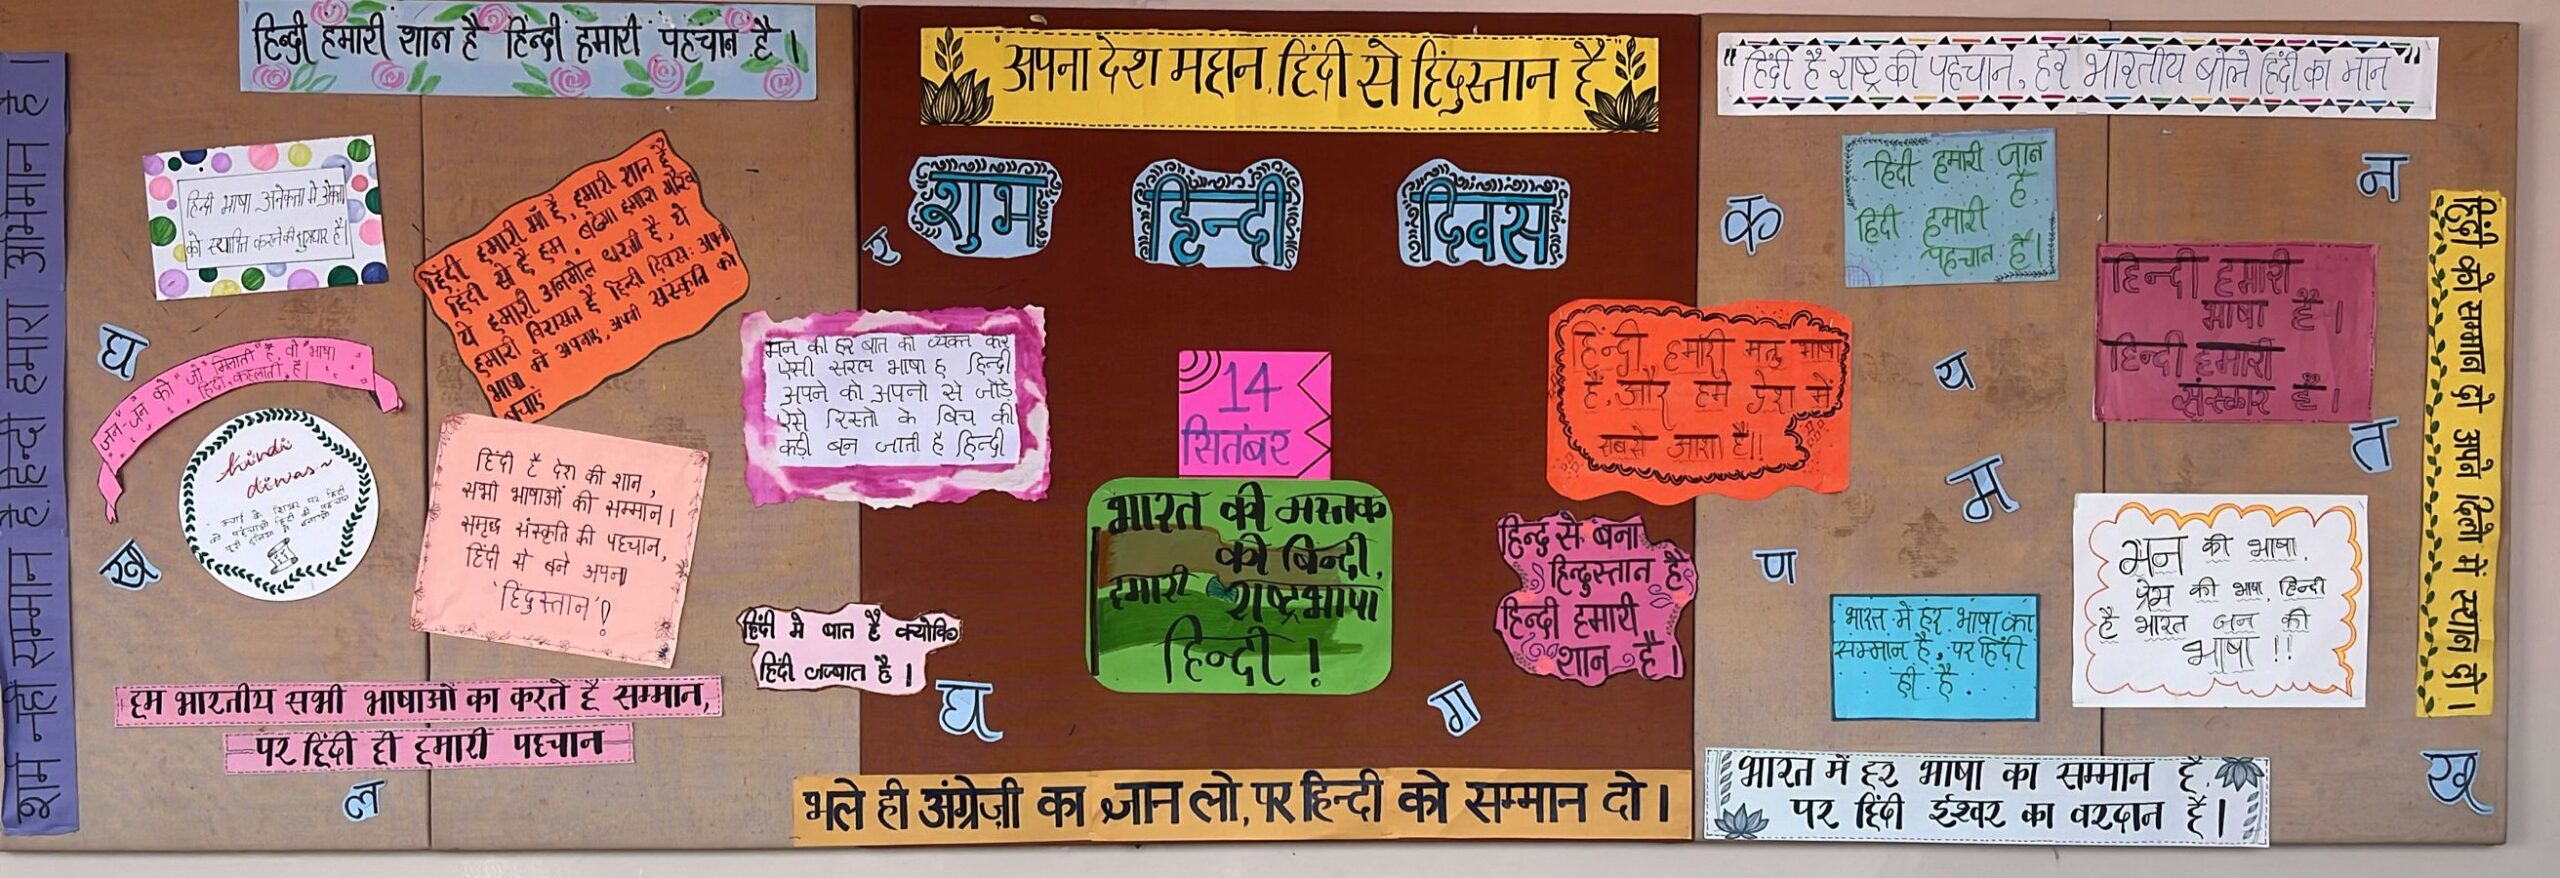 हिन्दी हमारी शान है हिन्दी हमारी पहचान है।
अपना देश महान, हिंदी से हिंदुस्तान है
"हिंदी है राष्ट्र की पहचान, हर भारतीय बोले हिंदी का मान"
शर्म नहीं सम्मान है हिन्दी हमारा अभिमान है।
हिन्दी भाषा अनेकता मे
को स्थापित करने की है।
हिंदी हमारी माँ है, हमारी शान है
हिंदी से है हम, बढ़ेगा हमारा गौरव
ये हमारी अनमोल धरती है, ये
हमारी विरासत है हिन्दी दिवस: अपनी
भाषा को अपनाए, अपनी संस्कृति को
बचाएं
घ
जन-जन को "जो" मिलाती है, वो भाषा
हिंदी कहलाती है।
hindi
diwas
ख
हिंदी है देश की शान,
सभी भाषाओं की सम्मान।
समृद्ध संस्कृति की पहचान,
हिंदी से बने अपना
'हिंदुस्तान'!
हम भारतीय सभी भाषाओं का करते है सम्मान,
पर हिंदी ही हमारी पहचान
ल
र
शुभ हिन्दी दिवस
मन की हर बात को व्यक्त कर
ऐसी सरल भाषा ह हिन्दी
अपने को अपनो से जोड़े
ऐसे रिस्तो के बिच की
कड़ी बन जाती है हिन्दी
14
सितंबर
भारत की मस्तक
की बिन्दी,
हमारी राष्ट्रभाषा
हिन्दी!
हिंदी मे बात है क्योकि
हिंदी जज्बात है।
घ
ग
हिन्दी हमारी मतृ भाषा
है, और हमे
हिन्दु से बना
हिन्दुस्तान है
हिन्दी हमारी
शान है।
भले ही अंग्रेज़ी का जान लो, पर हिन्दी को सम्मान दो।
क
हिंदी हमारी जान
है,
हिंदी हमारी
पहचान है।
न
हिन्दी हमारी
भाषा है।
हिन्दी हमारी
संस्कार है।
य
त
म
ण
भारत मे हर भाषा का
सम्मान है, पर हिंदी
ही है.
मन की भाषा,
प्रेम की भाषा, हिन्दी
है भारत जन की
भाषा!!
हिंदी को सम्मान दो अपने दिलो में स्थान दो।
भारत में हर भाषा का सम्मान है,
पर हिंदी ईश्वर का वरदान है।
ख